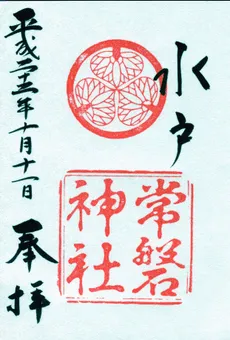 水戸
常磐
神社
奉拝
平成二十三年十月十一日